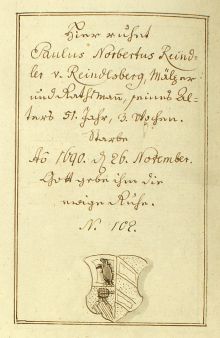 Hier ruhet
Paulus Norbertus Reind=
ler v. Reindlsberg, Mältzer
und Rathsmann, seines Al=
ters 51. Jahr, 3. Wochen.
Starbe
Aõ 1690. d 26. November.
Gott gebe ihm die
ewige Ruhe.
N. 102.